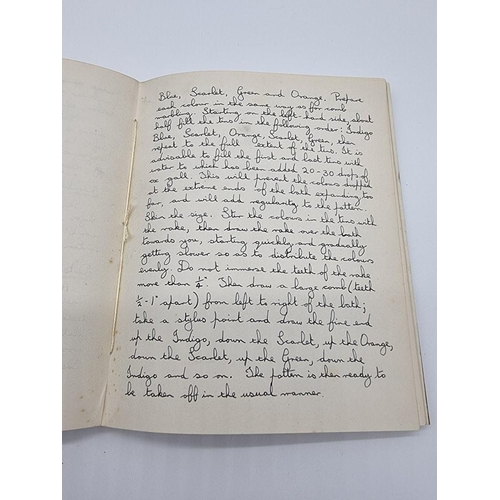 Blue, Scarlet, Green and Orange. Prepare
each colour in the same way as for comb
marbling. Starting on the left hand side, about
half fill the tins in the following order: Indigo
Blue, Scarlet, Orange, Scarlet, Green, then
repeat to the full extent of the tins. It is
advisable to fill the first and last tins with
water to which has been added 20-30 drops of
ox gall. This will prevent the colours dropped
at the extreme ends of the bath expanding too
far, and will add regularity to the pattern.
Skim the size. Stir the colours in the tins with
the rake, then draw the rake over the bath
towards you, starting quickly and gradually
getting slower so as to distribute the colours
evenly. Do not immerse the teeth of the rake
more than ¼". Then draw a large comb (teeth
½ - 1" apart) from left to right of the bath;
take a stylus point and draw the fine end
up the Indigo, down the Scarlet, up the Orange,
down the Scarlet, up the Green, down the
Indigo and so on. The pattern is then ready to
be taken off in the usual manner.